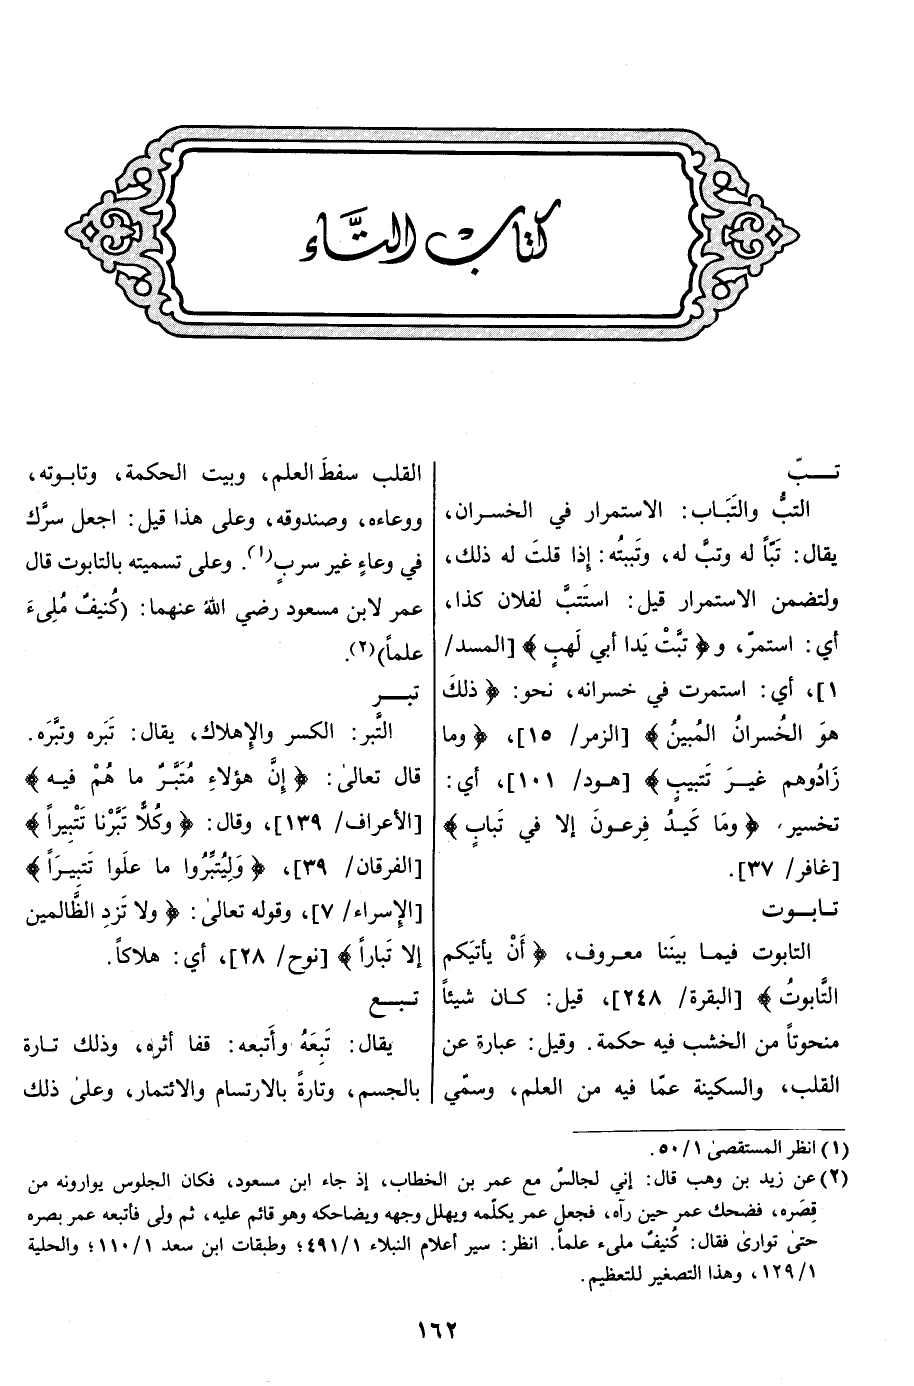 كتاب التَّاء
تــبّ
التبُّ والتَبَاب: الاستمرار في الخسران،
يقال: تَبّاً له وتبَّ له، وتَببتُه: إذا قلتَ له ذلك،
ولتضمن الاستمرار قيل: استَتبَّ لفلان كذا،
أي: استمرّ، و﴿ تبَّتْ يَدا أبي لَهبٍ ﴾ [المسد/
١]، أي: استمرت في خسرانه، نحو: ﴿ ذلكَ
هوَ الخُسرانُ المُبينُ ﴾ [الزمر/ ١٥]، ﴿ وما
زَادُوهم غيـرَ تَتبيبٍ ﴾ [هـود/ ١٠١]، أي:
تخسير، ﴿ ومَا كَيـدُ فِرعـونَ إلا في تَبابٍ ﴾
[غافر/ ٣٧].
تـابـوت
التابوت فيمـا بينَنا معـروف، ﴿ أَنْ يأتيَكم
التَّابوتُ ﴾ [البقرة/ ٢٤٨]، قيل: كـان شيئاً
منحوتاً من الخشب فيه حكمة. وقيل: عبارة عن
القلب، والسكينة عمّا فيه من العلم، وسمّي
القلب سفطَ العلم، وبيت الحكمة، وتابـوته،
ووعاءه، وصندوقه، وعلى هذا قيل: اجعل سرَّك
في وعاءٍ غير سربٍ(١). وعلى تسميته بالتابوت قال
عمر لابن مسعود رضي اللهُ عنهما: (كُنيفٌ مُلِىءَ
علماً)(٢).
تبــر
التَّبر: الكسر والإهلاك، يقال: تَبَره وتبَّرَه.
قال تعالىٰ: ﴿ إنَّ هؤلاءِ مُتَبَّرٌ ما هُمْ فيـه ﴾
[الأعراف/ ١٣٩]، وقال: ﴿ وكُلاًّ تَبَّرْنا تَتْبِيراً ﴾
[الفرقان/ ٣٩]، ﴿ وَلِيُتبِّرُوا ما علَوا تَتبِيـرَاً ﴾
[الإسراء/ ٧]، وقوله تعالىٰ: ﴿ ولا تَزدِ الظَّالمين
إلا تَباراً ﴾ [نوح/ ٢٨]، أي: هلاكاً.
تبــع
يقال: تَبِعَهُ وأَتبعه: قفا أثره، وذلك تـارة
بالجسم، وتارةً بالارتسام والائتمار، وعلىٰ ذلك
(١) انظر المستقصىٰ ٥٠/١.
(٢) عن زيد بن وهب قال: إني لجالسٌ مع عمر بن الخطاب، إذ جاء ابن مسعود، فكان الجلوس يوارونه من
قِصَره، فضحك عمر حين رآه، فجعل عمر يكلّمه ويهلل وجهه ويضاحكه وهو قائم عليه، ثم ولى فأتبعه عمر بصره
حتىٰ توارىٰ فقال: كُنيفٌ ملىء علماً. انظر: سير أعلام النبلاء ٤٩١/١؛ وطبقات ابن سعد ١١٠/١؛ والحلية
١٢٩/١، وهذا التصغير للتعظيم.
١٦٢